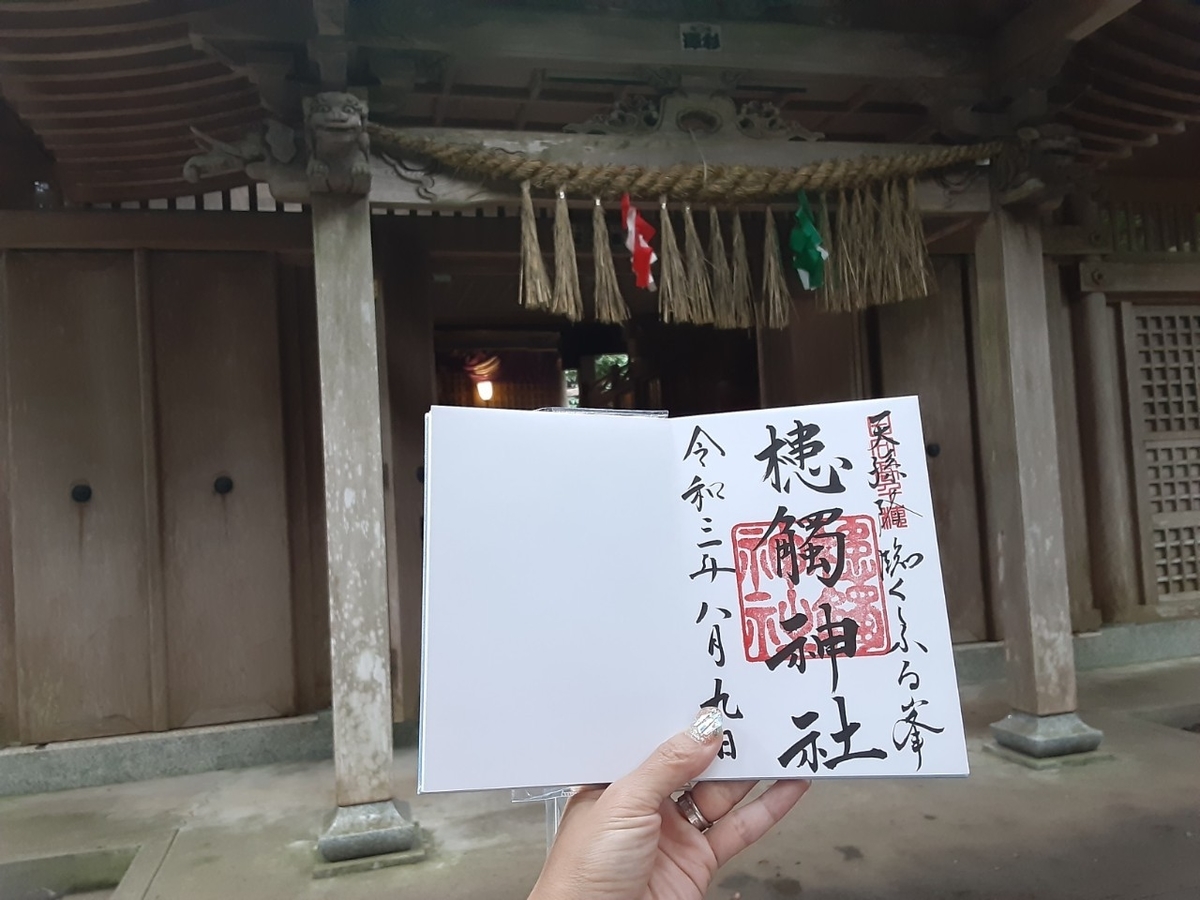 天孫降臨くしふる峯
槵觸神社
令和三年八月九日